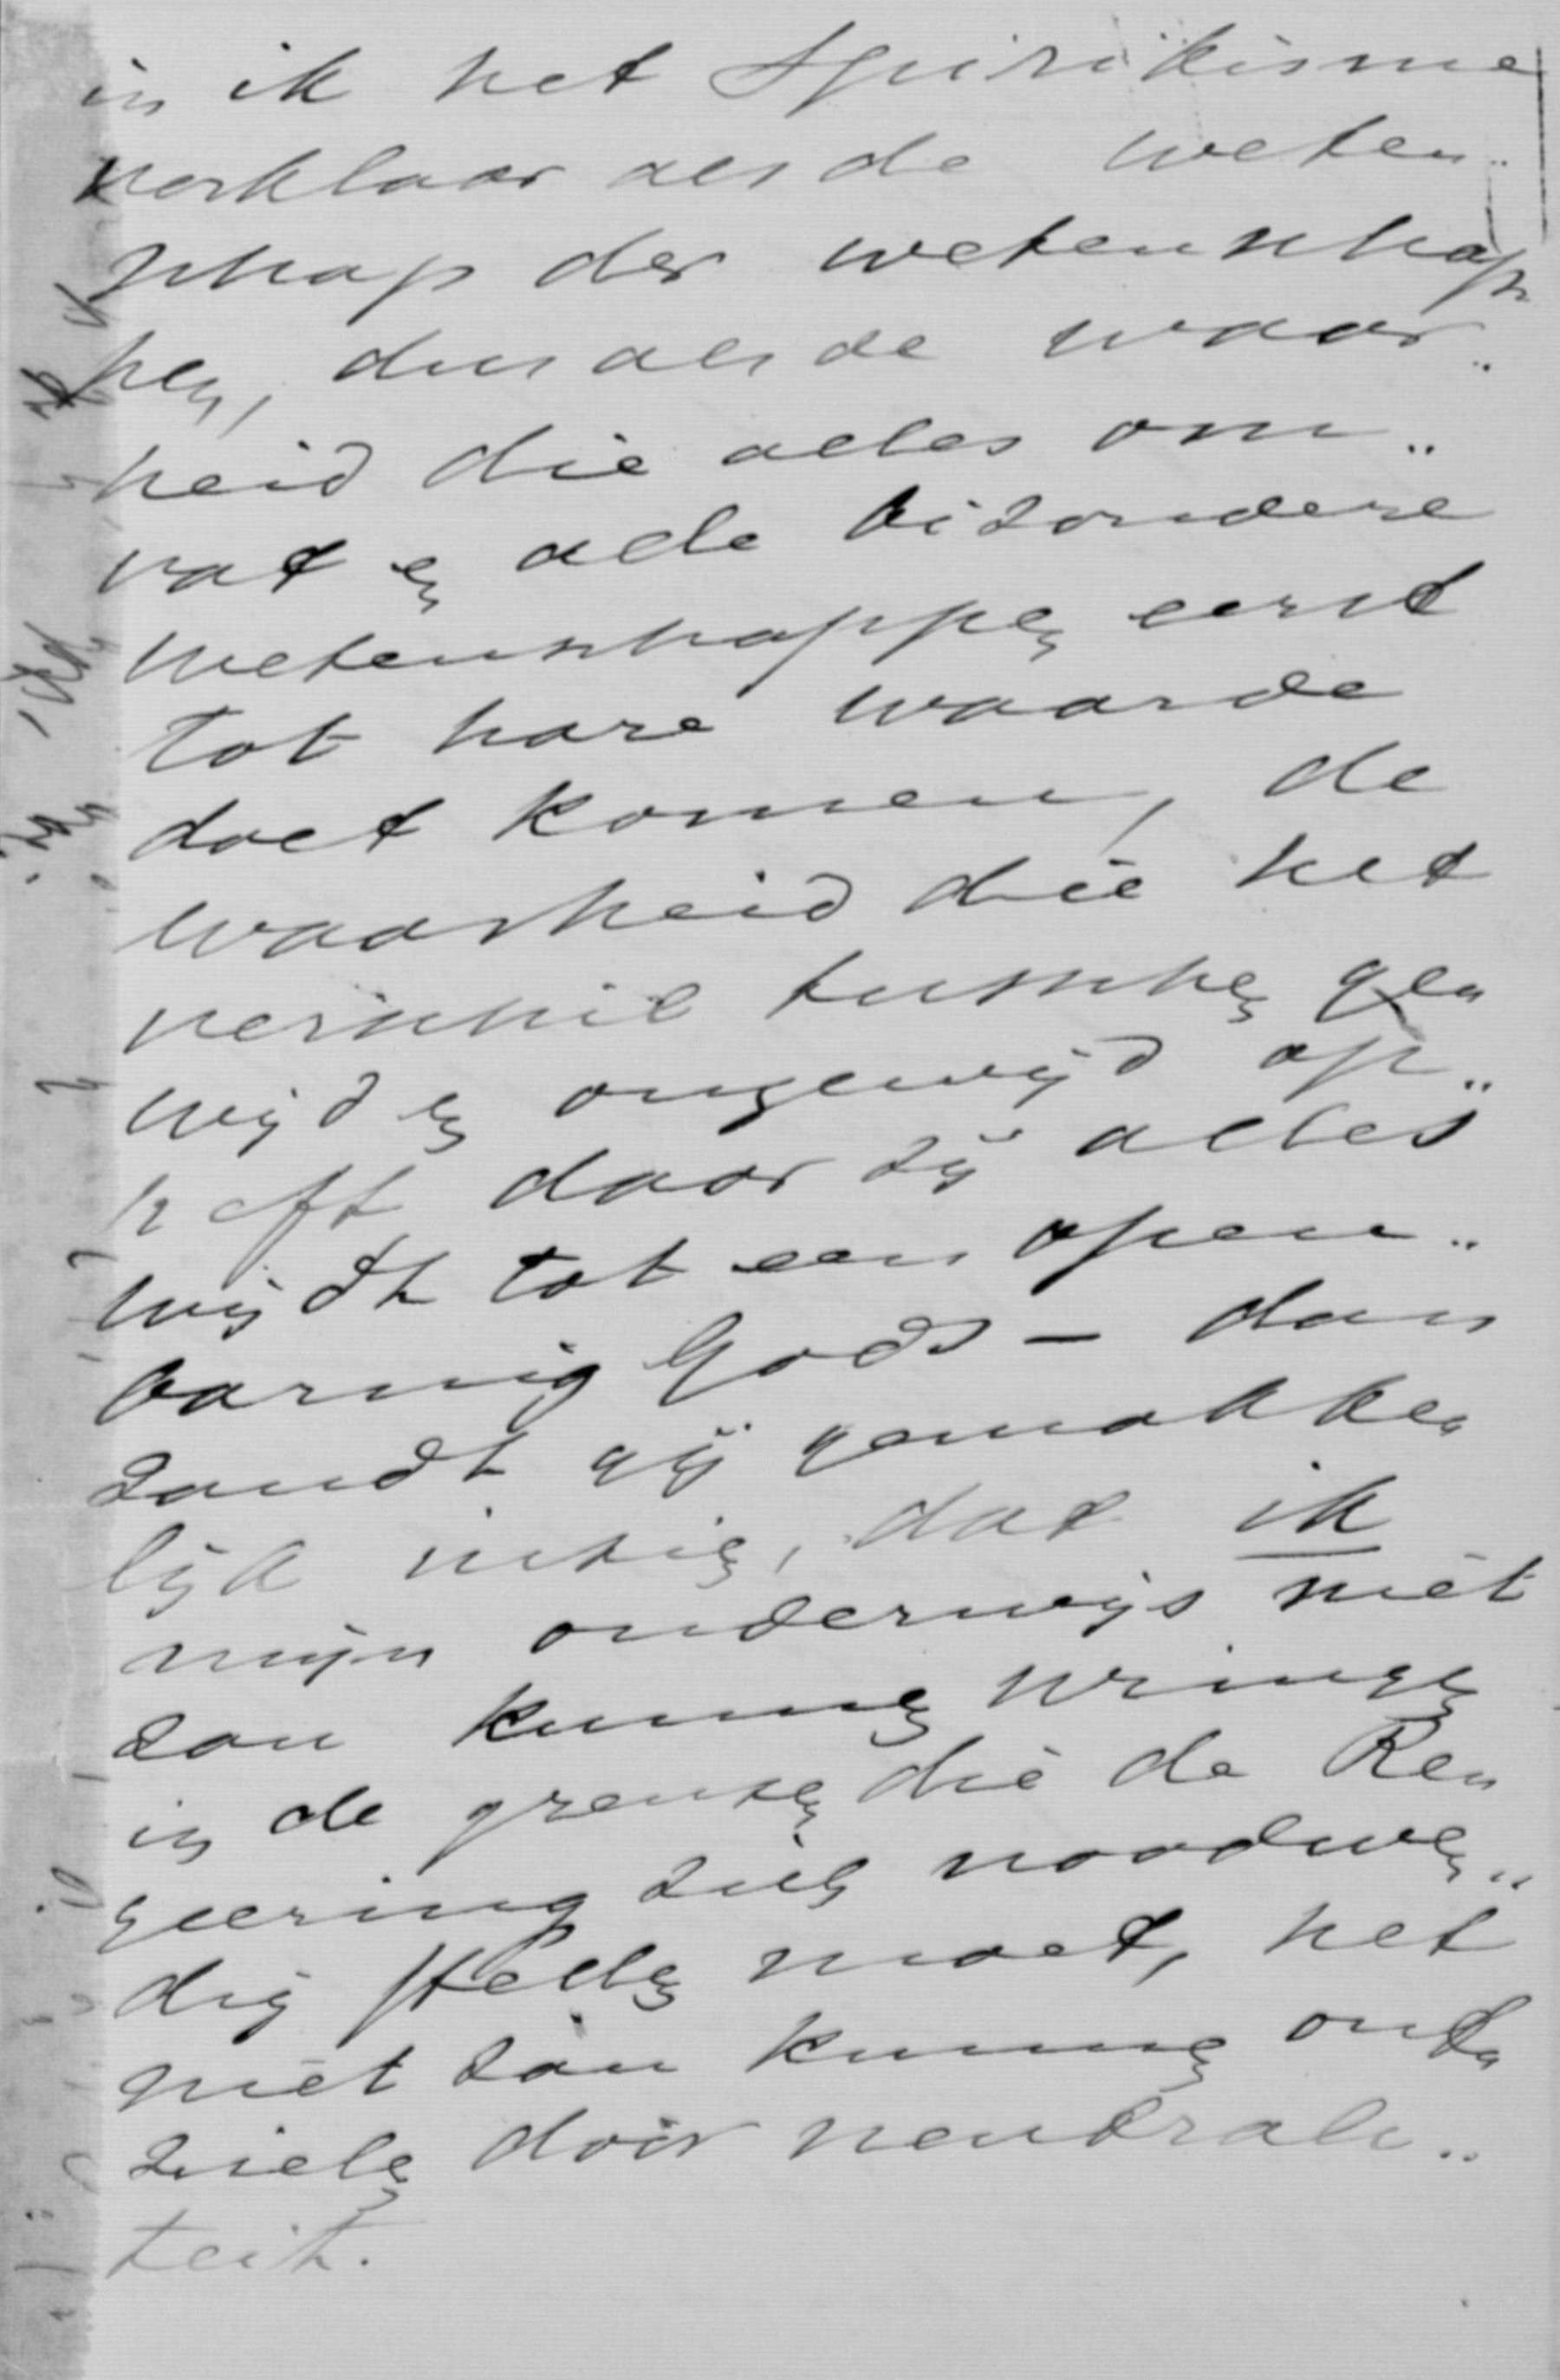 in ik het Spiritisme
verklaar als de weten„
schap der wetenschap
pen, dus als de waar„
heid die alles om„
vat en alle bizondere
wetenschappen eerst
tot hare waarde
doet komen, de
waarheid die het
verschil tusschen ge„
wijd en ongewijd op„
heft daar zij alles
wijdt tot een open„
baring Gods – dan
zoudt gij gemakke„
lijk inzien, dat ik
mijn onderwijs niet
zou kunnen wringen
in de grenzen die de Re„
geering zich noodwen„
dig stellen moet, het
niet zou kunnen ont„
zielen door neutrali„
teit.